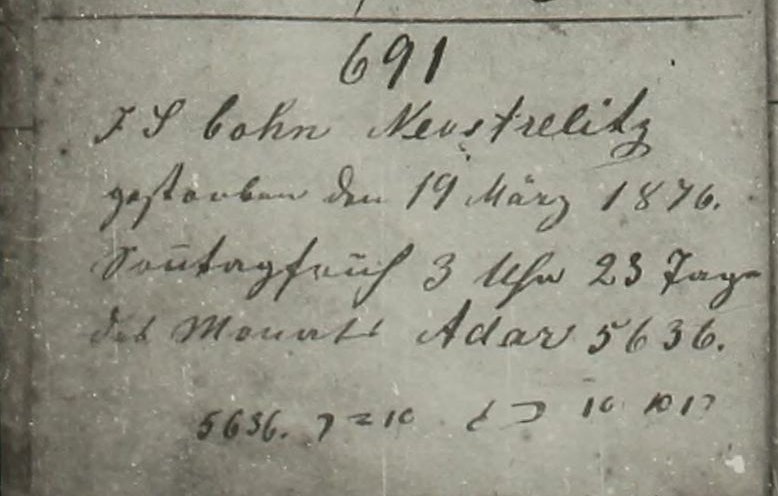 691
J S Cohn Neustrelitz
gestorben den 19 März 1876.
Sontagfrüh 3 Uhr 23 Tage
des Monats Adar 5636.
5636.